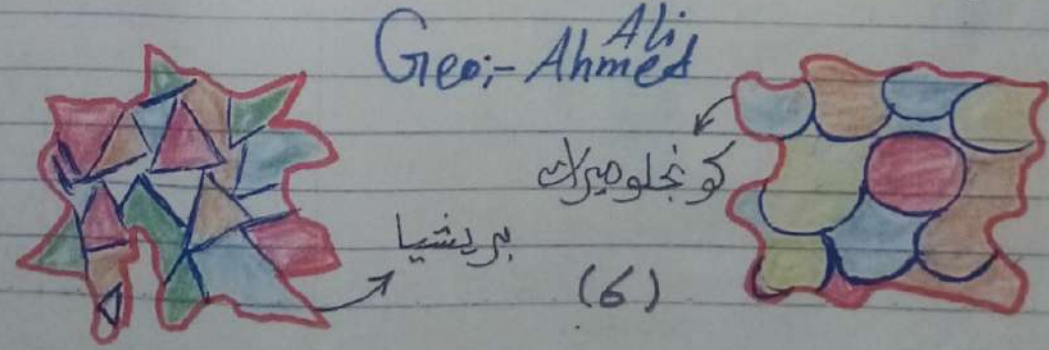 Geo:- Ahmed Ali
كونجلوميرات
بريشيا
(6)